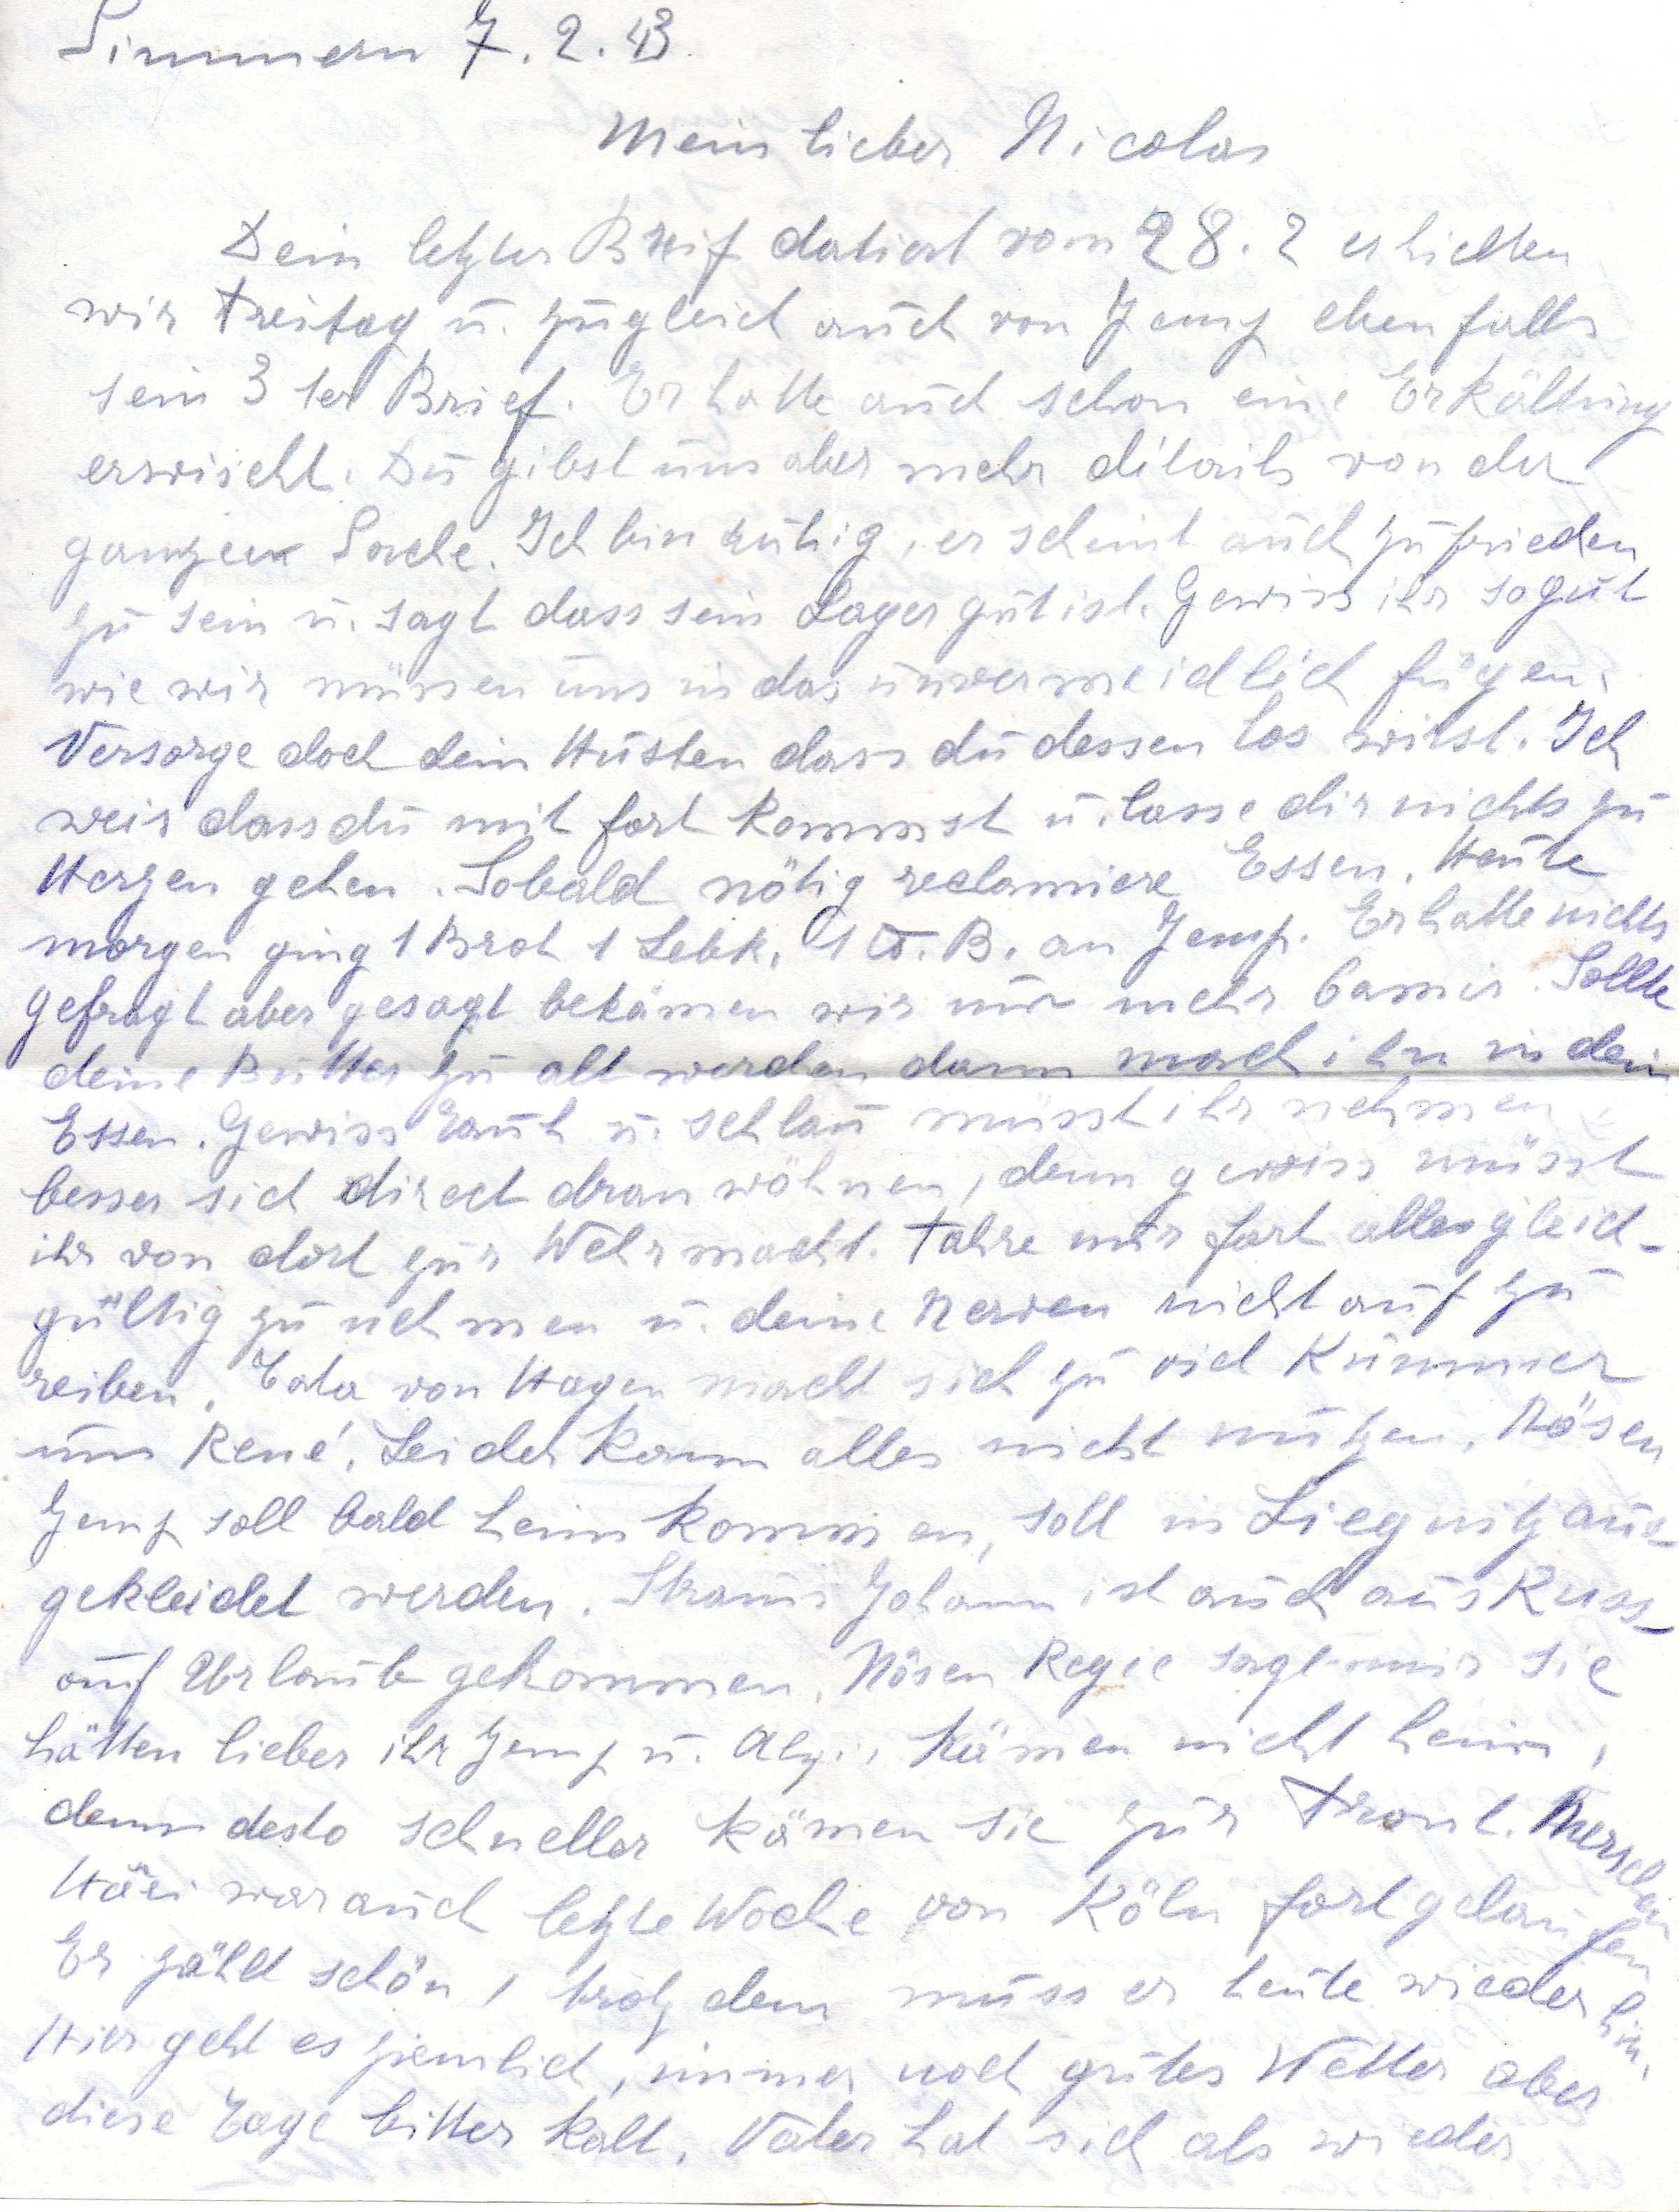 Simmern 7. 2. 43
Mein lieber Nicolas
Dein letzter Brief datiert vom 28. 2 erhielten
wir Freitag u. zugleich auch von Jemp ebenfalls
sein 3 ter Brief. Er hatte auch schon eine Erkältung
erwischt. Du gibst uns aber mehr détails von der
ganzen Sache. Ich bin ruhig, er scheint auch zufrieden
zu sein u. sagt dass sein Lager gut ist. Gewiss ihr sogut
wie wir müssen uns in das unvermeidlich fügen.
Versorge doch dein Husten dass du dessen los wirst. Ich
weis dass du mit fort kommst u. lasse dir nichts zu
Herzen gehen. Sobald nötig reclamiere Essen. Heute
morgen ging 1 Brot 1 Lebk. 1 B. an Jemp. Er hatte nichts
gefragt aber gesagt bekämen wir nur mehr Sollte
deine Butter zu alt werden dann mach ihn in dein
Essen. Gewiss u. schlau müsst ihr nehmen
besser sich direct dran wöhnen, denn gewiss müsst
ihr von dort zur Wehrmacht. Fahre nur fort alles gleich-
gültig zu nehmen u. deine Nerven nicht auf zu
reiben. Tata von Hagen macht sich zu viel Kummer
um René. Leider kann alles nicht nützen. Nösen
Jemp soll bald heim kommen, soll in Liegnitz aus-
gekleidet werden. Johann ist auch aus Russ-
auf Urlaub gekommen. Nösen Regie sagt mir sie
hätten lieber ihr Jemp u. kämen nicht heim,
denn desto schneller kämen sie zur Front. Merschen
Häri war auch letzte Woche von Köln fortgelaufen
Er zählt schön, trotz dem muss er heute wieder hin.
Hier geht es ziemlich, immer noch gutes Wetter aber
diese Tage bitter kalt. Vater hat sich als wieder